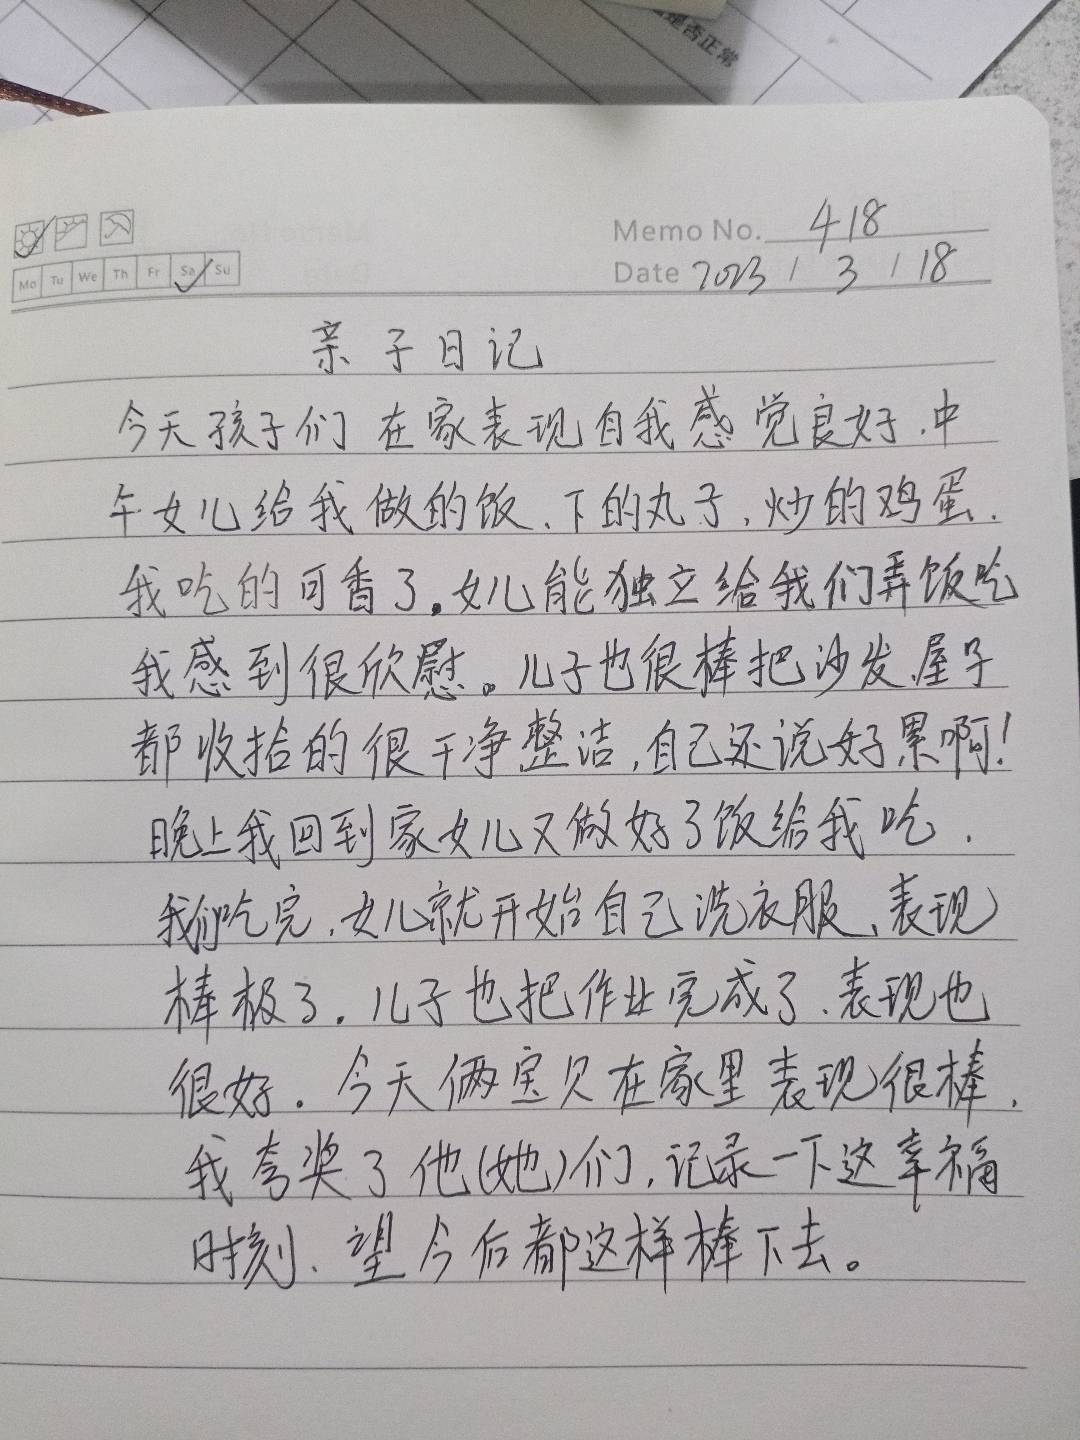 是否正常
Memo No. 418
Mo Tu We Th Fr Sa Su
Date 2023 / 3 / 18
亲子日记
今天孩子们在家表现自我感觉良好.中
午女儿给我做的饭、下的丸子,炒的鸡蛋.
我吃的可香了。女儿能独立给我们弄饭吃
我感到很欣慰。儿子也很棒把沙发、屋子
都收拾的很干净整洁,自己还说好累啊!
晚上我回到家女儿又做好了饭给我吃.
我们吃完,女儿就开始自己洗衣服、表现
棒极了.儿子也把作业完成了、表现也
很好.今天俩宝贝在家里表现很棒.
我夸奖了他(她)们,记录一下这幸福
时刻、望今后都这样棒下去。